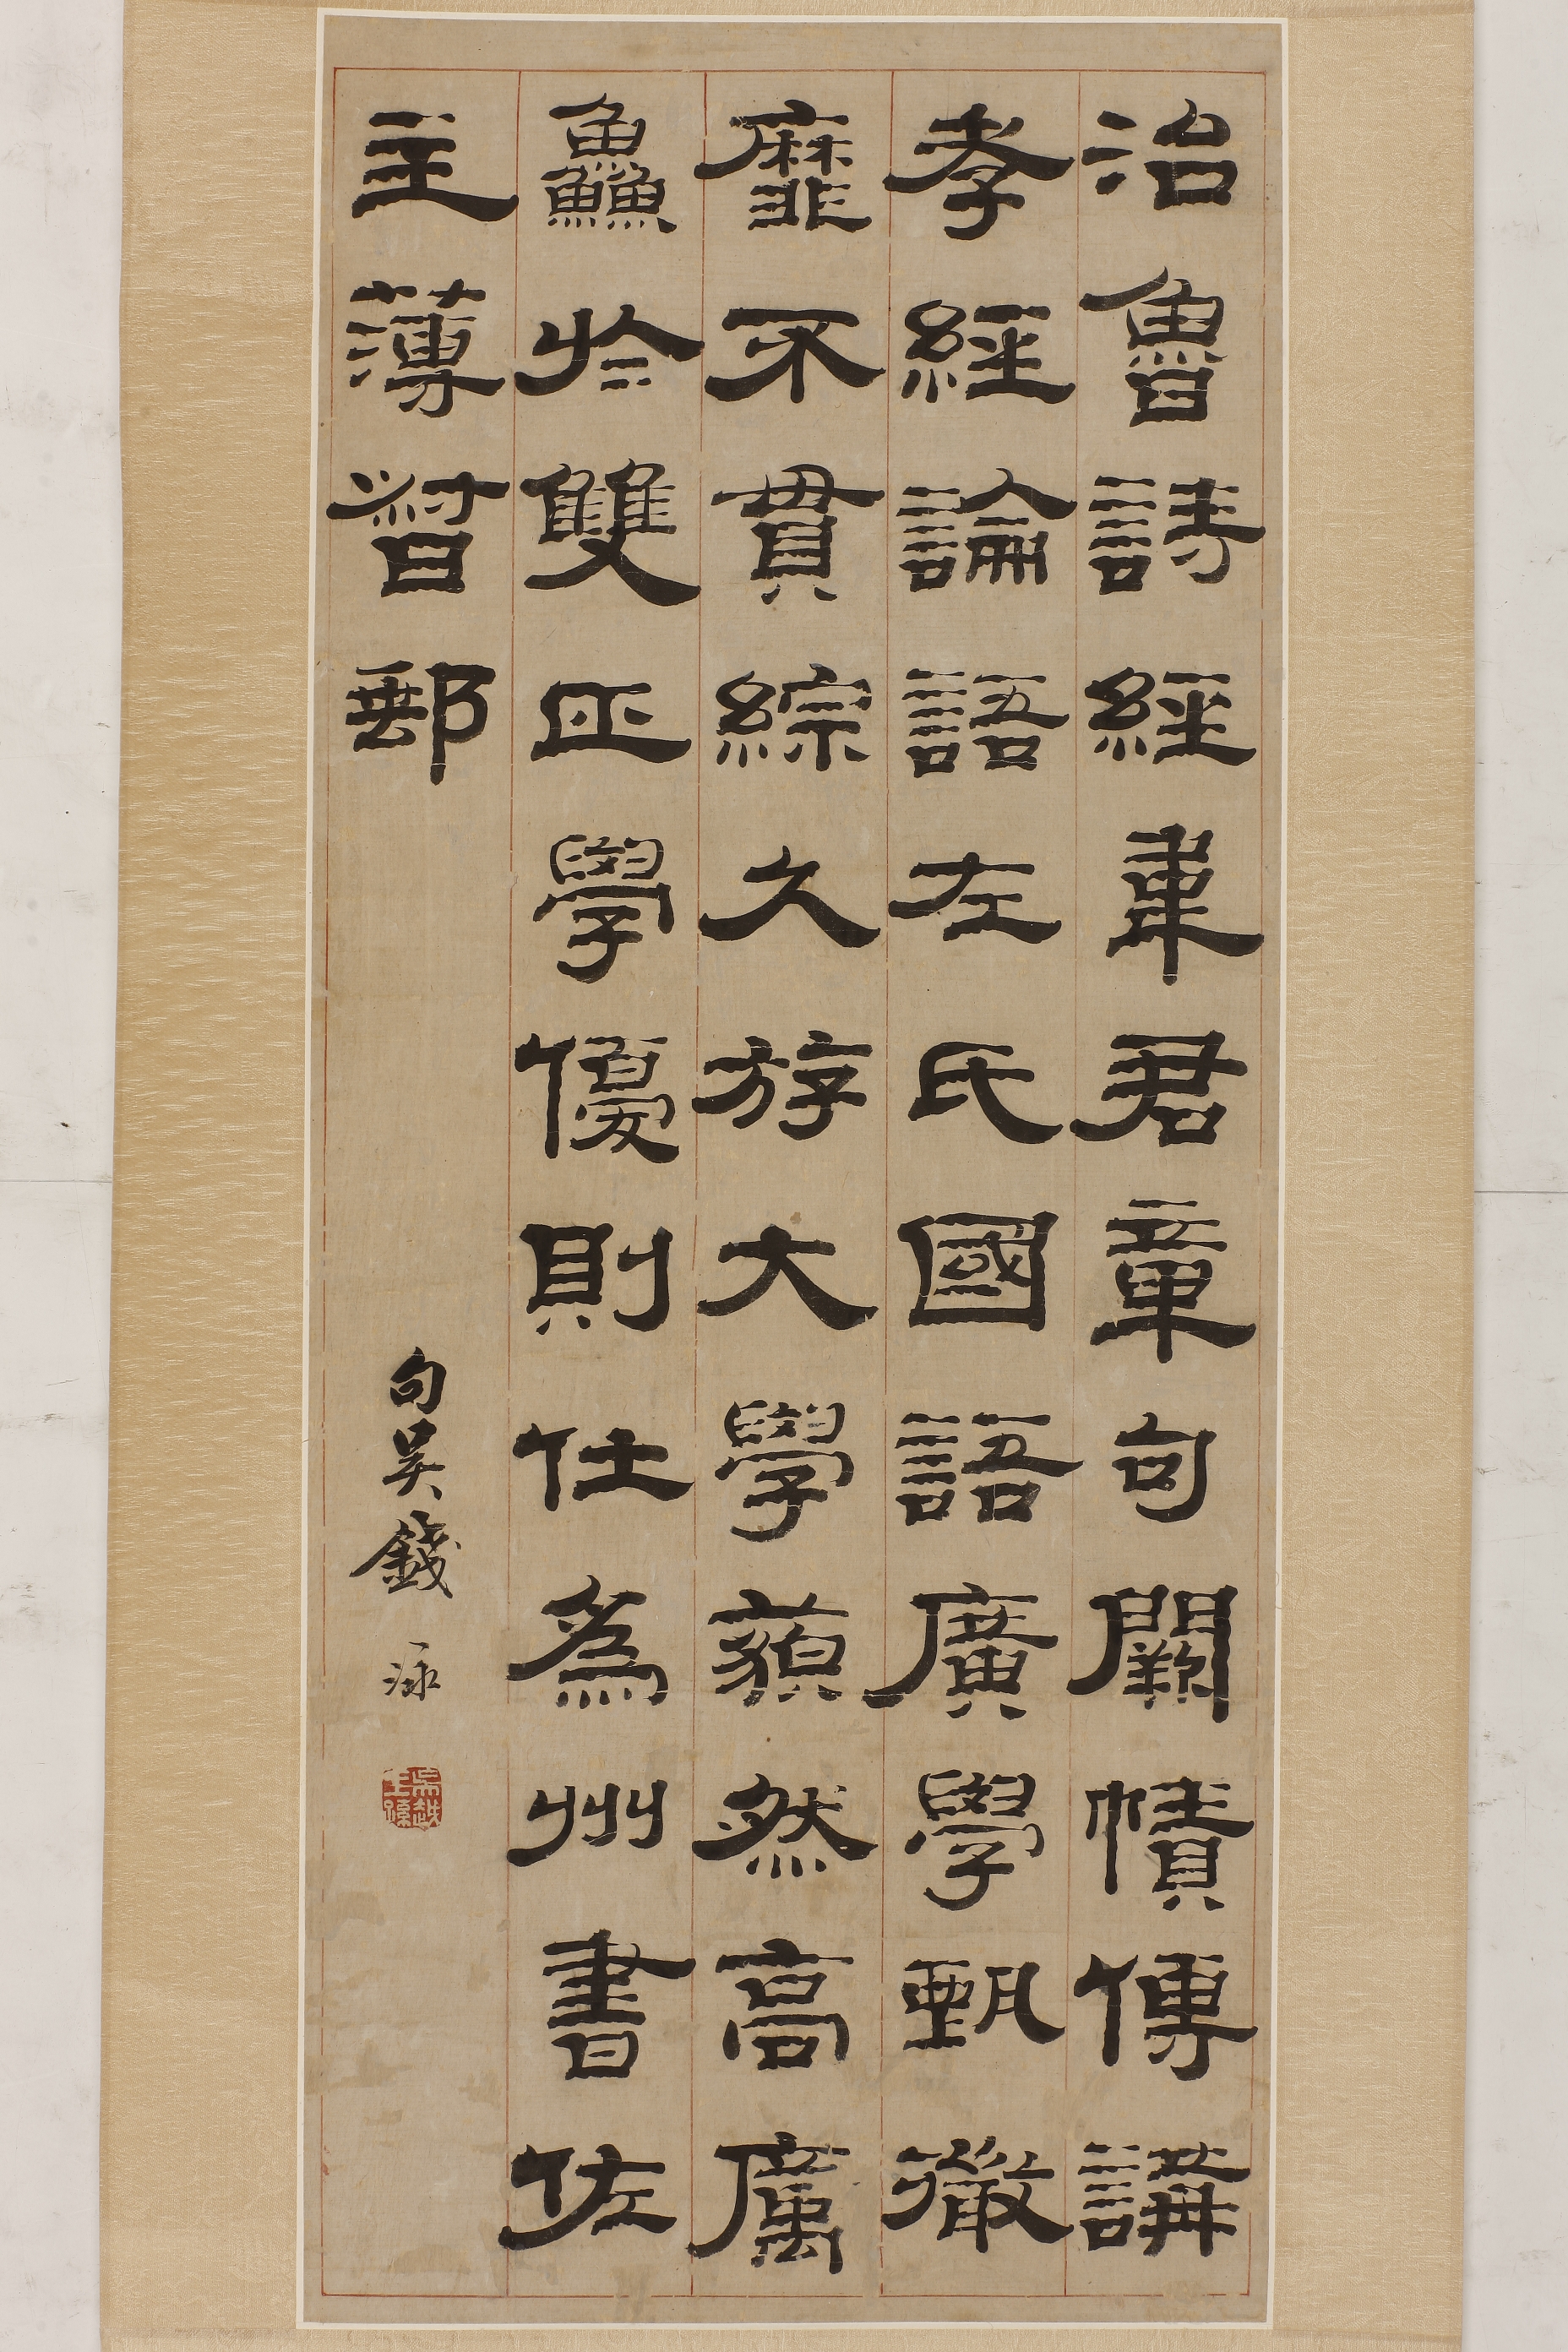 治魯詩經韋君章句闕幘傳講
孝經論語左氏國語廣學甄微
靡不貫綜久斿大學藐然高厲
鱻於雙匹學優則仕為州書佐
主薄督郵
句吳錢泳
吳越王孫